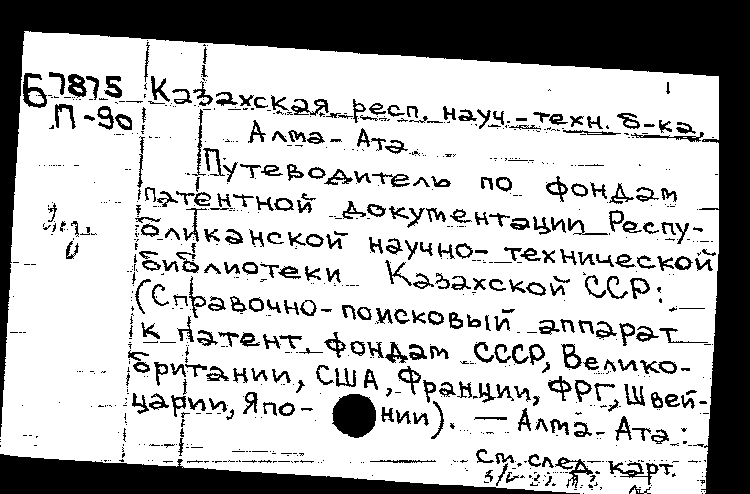 Б 7875
П-90
Казахская респ. науч.-техн. б-ка,
Алма-Ата.
Путеводитель по фондам
патентной документации Респу-
бликанской научно-технической
библиотеки Казахской ССР:
(Справочно-поисковый аппарат
к патент. фондам СССР, Велико-
британии, США, Франции, ФРГ, Швей-
царии, Япо-нии). — Алма-Ата:
см. след. карт.